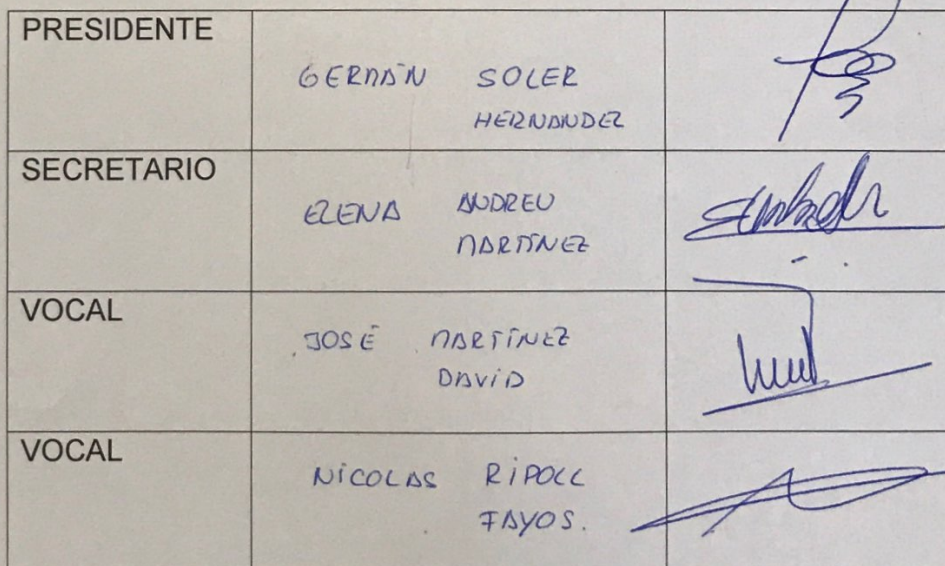 PRESIDENTE
GERMÁN SOLER
HERNANDEZ
SECRETARIO
ELENA ANDREU
MARTÍNEZ
VOCAL
JOSÉ MARTÍNEZ
DAVID
VOCAL
NICOLAS RIPOLL
FAYOS.